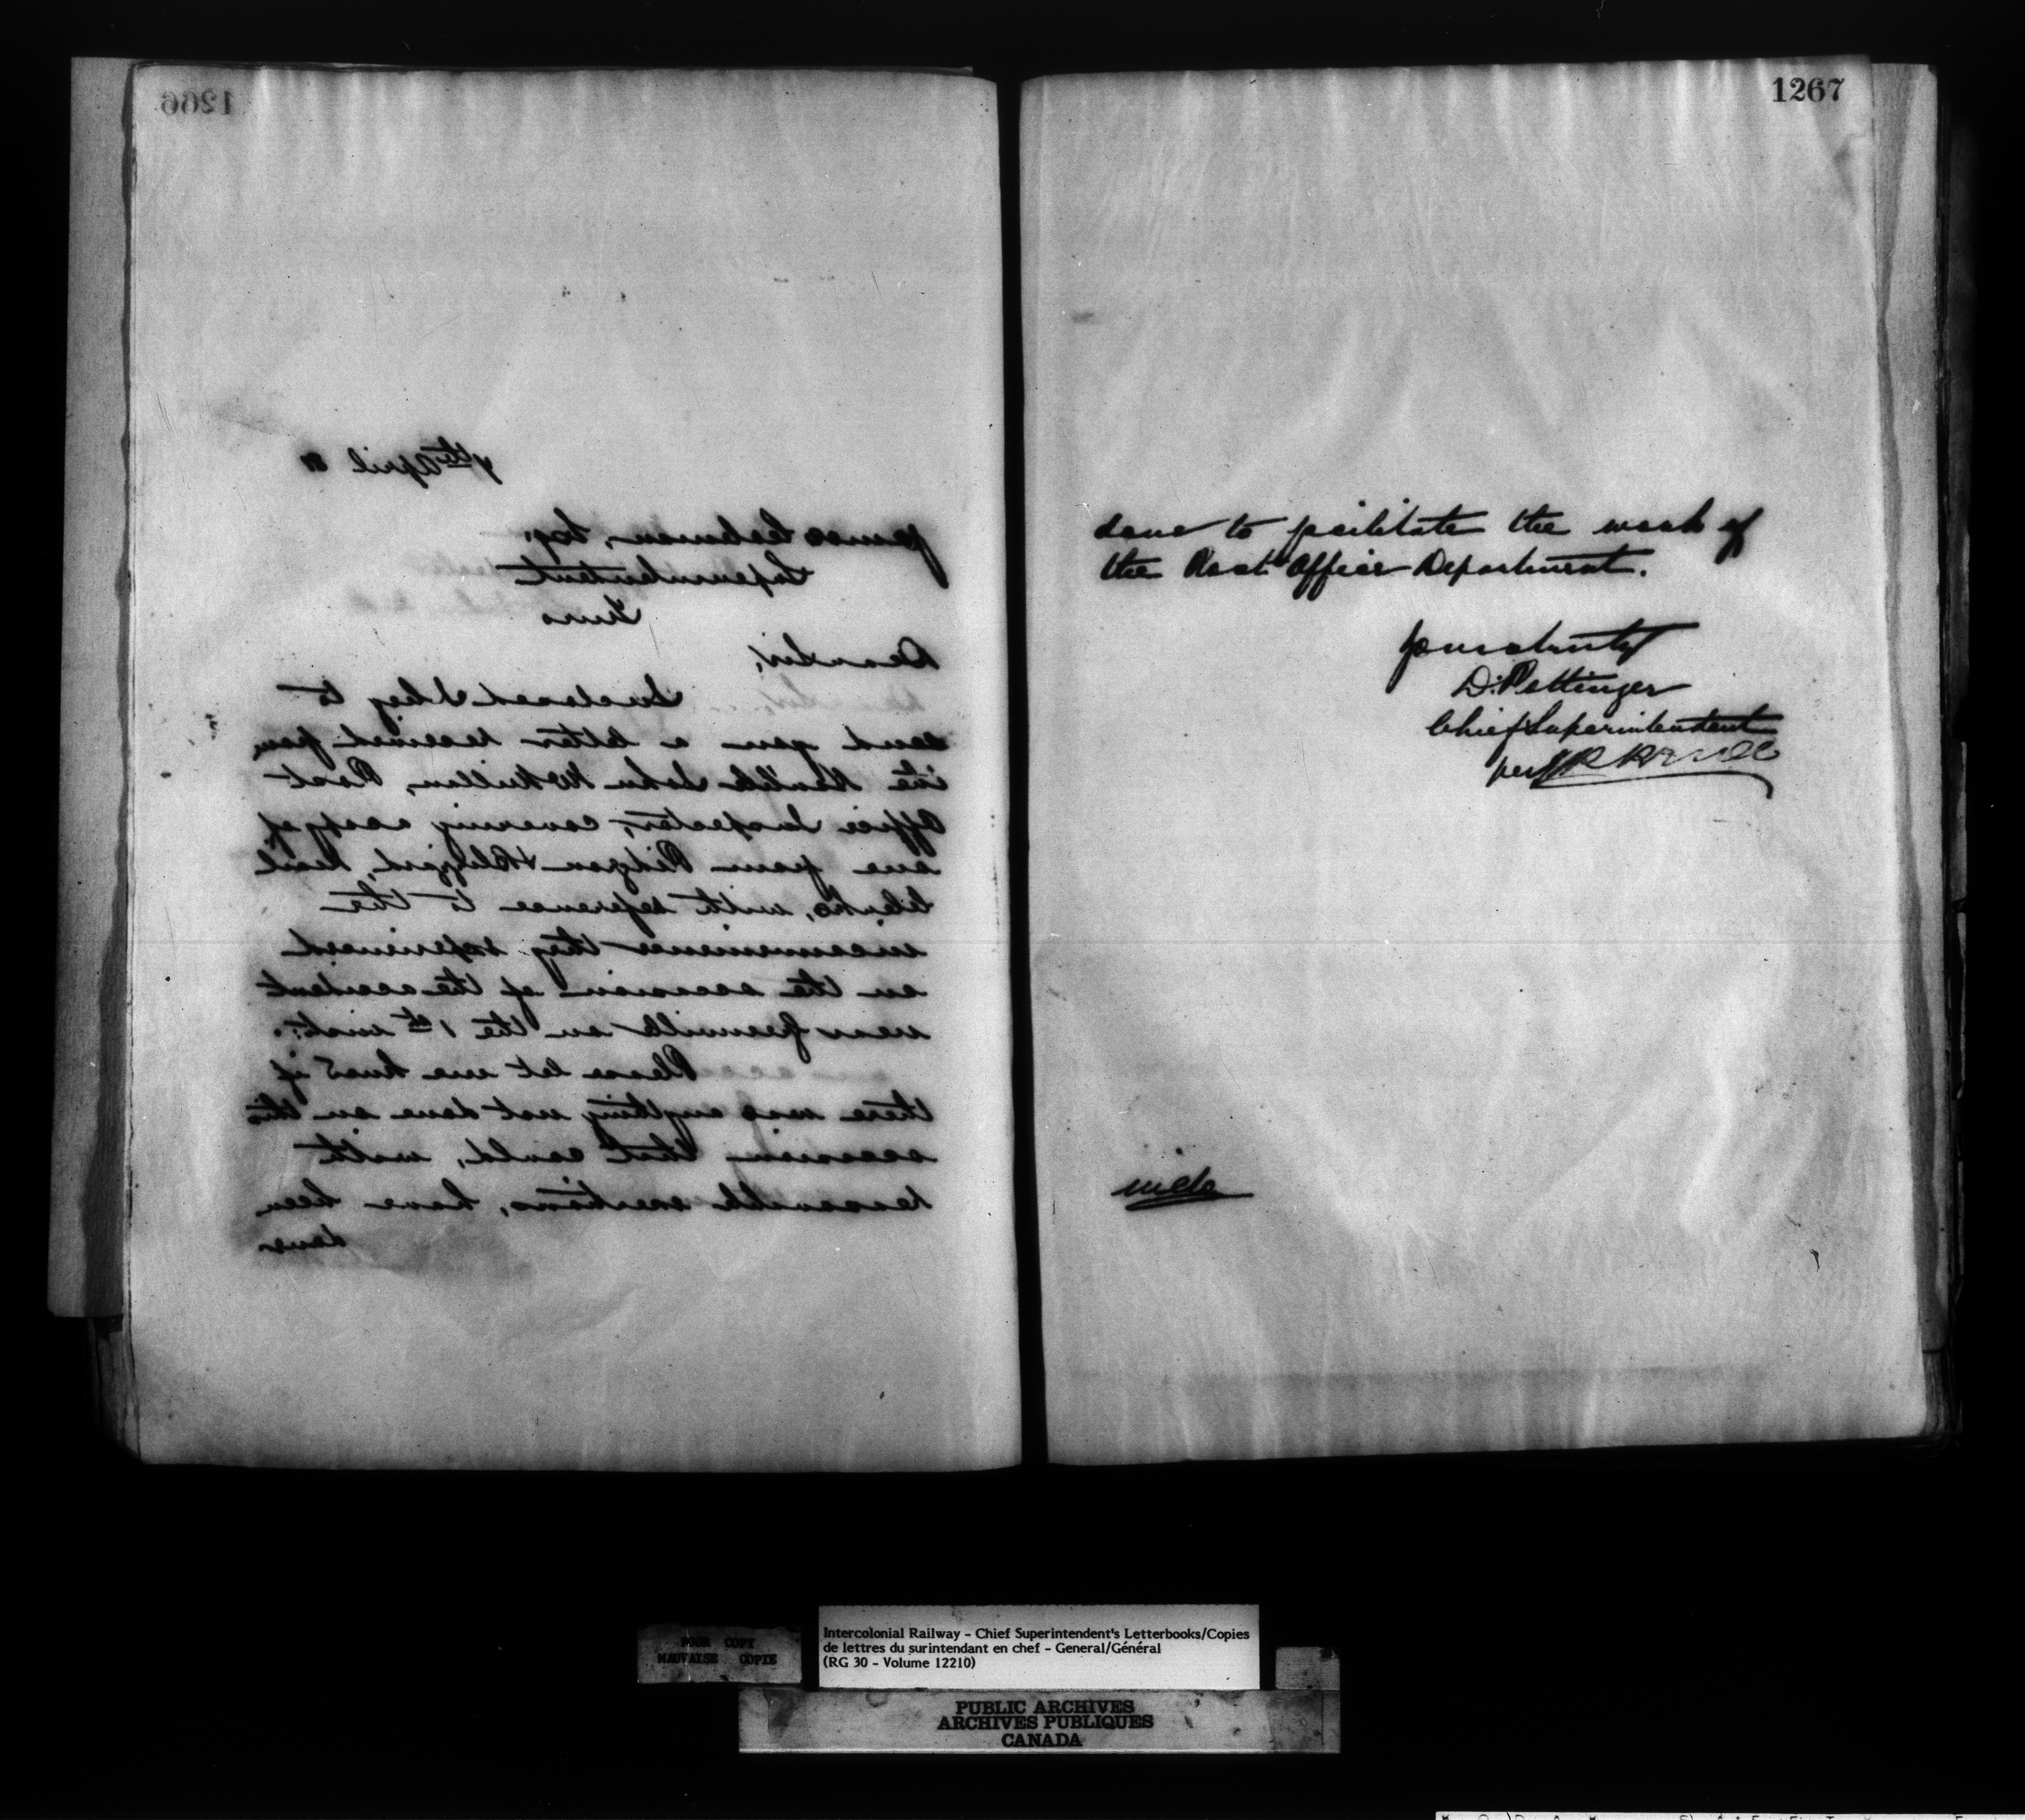 1266
7th April 81
James Coleman, Esq.
Superintendent
Truro
Dear Sir,
Enclosed I beg to
send you a letter received from
the John McMillan, Post
Office Inspector, covering a copy of
one from Pidgeon Mail
Clerks, with reference to the
inconvenience they experienced
on the occasion of the accident
near Greenville on the 1st inst:
Please let me know if
there was anything not done on this
occasion that could, with
reasonable exertions, have been
done
1267
done to facilitate the work of
the Post Office Department.
Yours truly
D. Pottinger
Chief Superintendent
per
POOR COPY
MAUVAISE COPIE
Intercolonial Railway - Chief Superintendent's Letterbooks/Copies
de lettres du surintendant en chef - General/Général
(RG 30 - Volume 12210)
PUBLIC ARCHIVES
ARCHIVES PUBLIQUES
CANADA